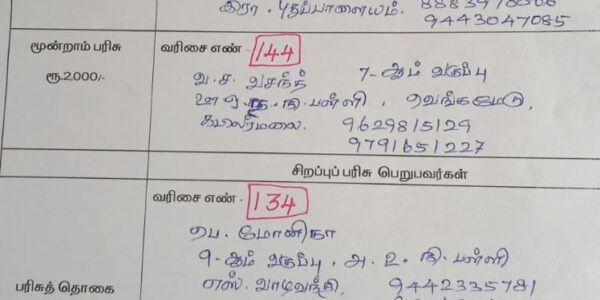 இரா. புதுப்பாளையம்.
9443047085
மூன்றாம் பரிசு
ரூ.2,000/-
வரிசை எண் - 144
வ.ச. வசந்த் 7-ஆம் வகுப்பு
ஊ.ஒ.ந.நி.பள்ளி, வெங்கமேடு,
கபிலர்மலை. 9629815129
9791651227
சிறப்புப் பரிசு பெறுபவர்கள்
வரிசை எண் - 134
பெ. மோனிகா
9-ஆம் வகுப்பு, அ.உ.நி.பள்ளி
பரிசுத் தொகை
எஸ். வாழவந்தி, 9442335781